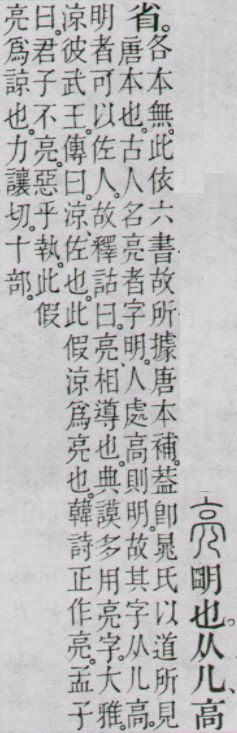 亮 朙也。从儿、高
省。各本無。此依六書故所據唐本補。葢卽晁氏以道所見
唐本也。古人名亮者字明、人處高則明。故其字从儿高。
明者可以佐人。故釋詁曰。亮、相導也。典謨多用亮字。大雅。
涼彼武王。傳曰。涼、佐也。此假涼爲亮也。韓詩正作亮。孟子
曰。君子不亮。惡乎執。此假
亮爲諒也。力讓切。十部。